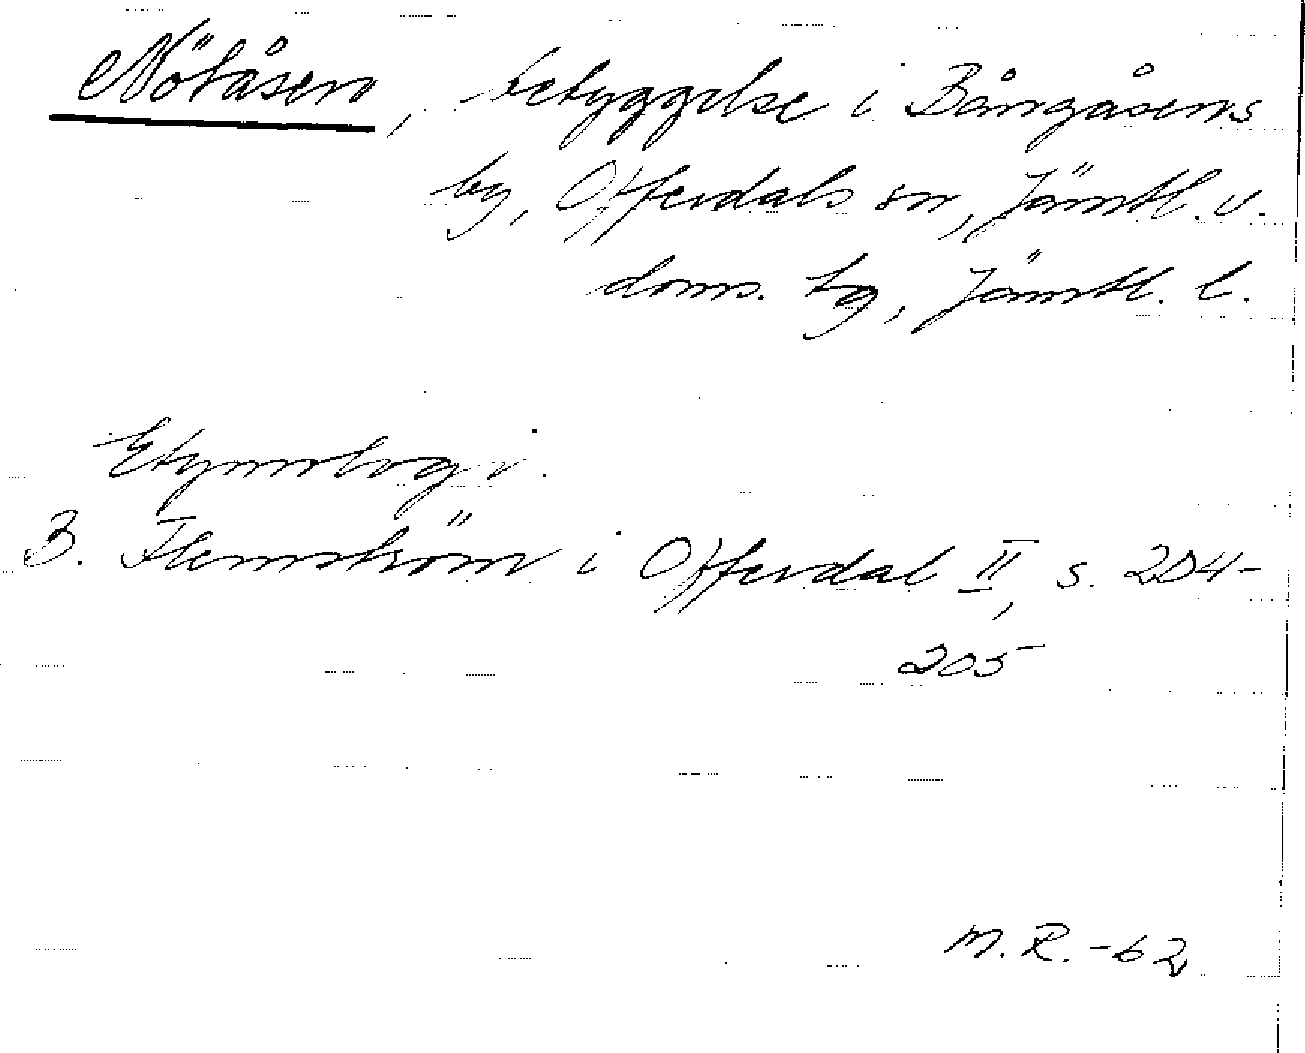 Nötåsen, bebyggelse i Bångåsens
by, Offerdals sn, Jämtl. v.
doms. tg, Jämtl. l.
Etymologi.
B. Flemström i Offerdal II, s. 204-
205
M.R. -62